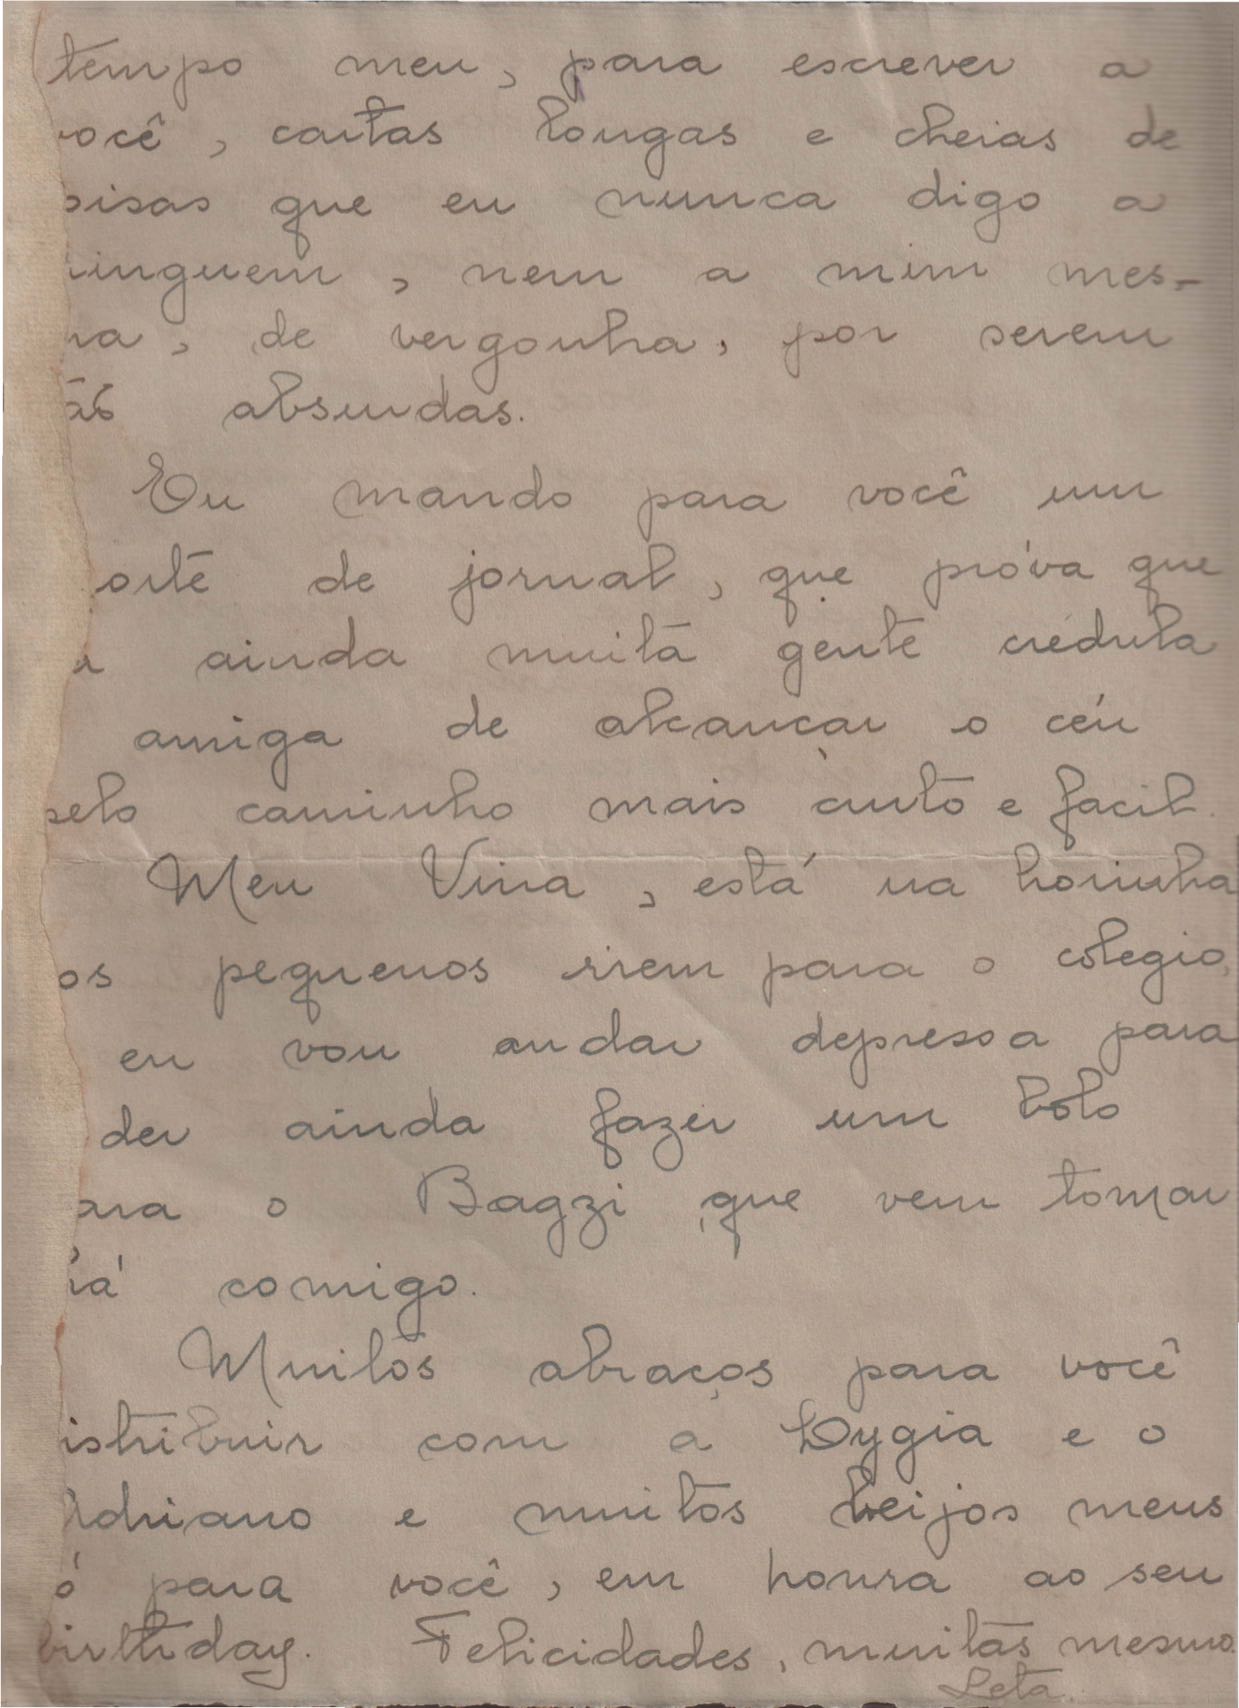 tempo meu, para escrever a
você, cartas longas e cheias de
oisas que eu nunca digo a
inguem, nem a mim mes-
ma, de vergonha, por serem
ãs absurdas.
Eu mando para você um
orte de jornal, que próva que
a ainda muita gente crédula
amiga de alcançar o céu
pelo caminho mais curto e facil.
Meu Vina, está na horinha
os pequenos irem para o colegio,
eu vou andar depressa para
der ainda fazer um bolo
ara o Bagzi que vem tomar
há comigo.
Muitos abraços para você
istribuir com a Lygia e o
Adriano e muitos beijos meus
ó para você, em honra ao seu
birthday. Felicidades, muitas mesmo.
Leta